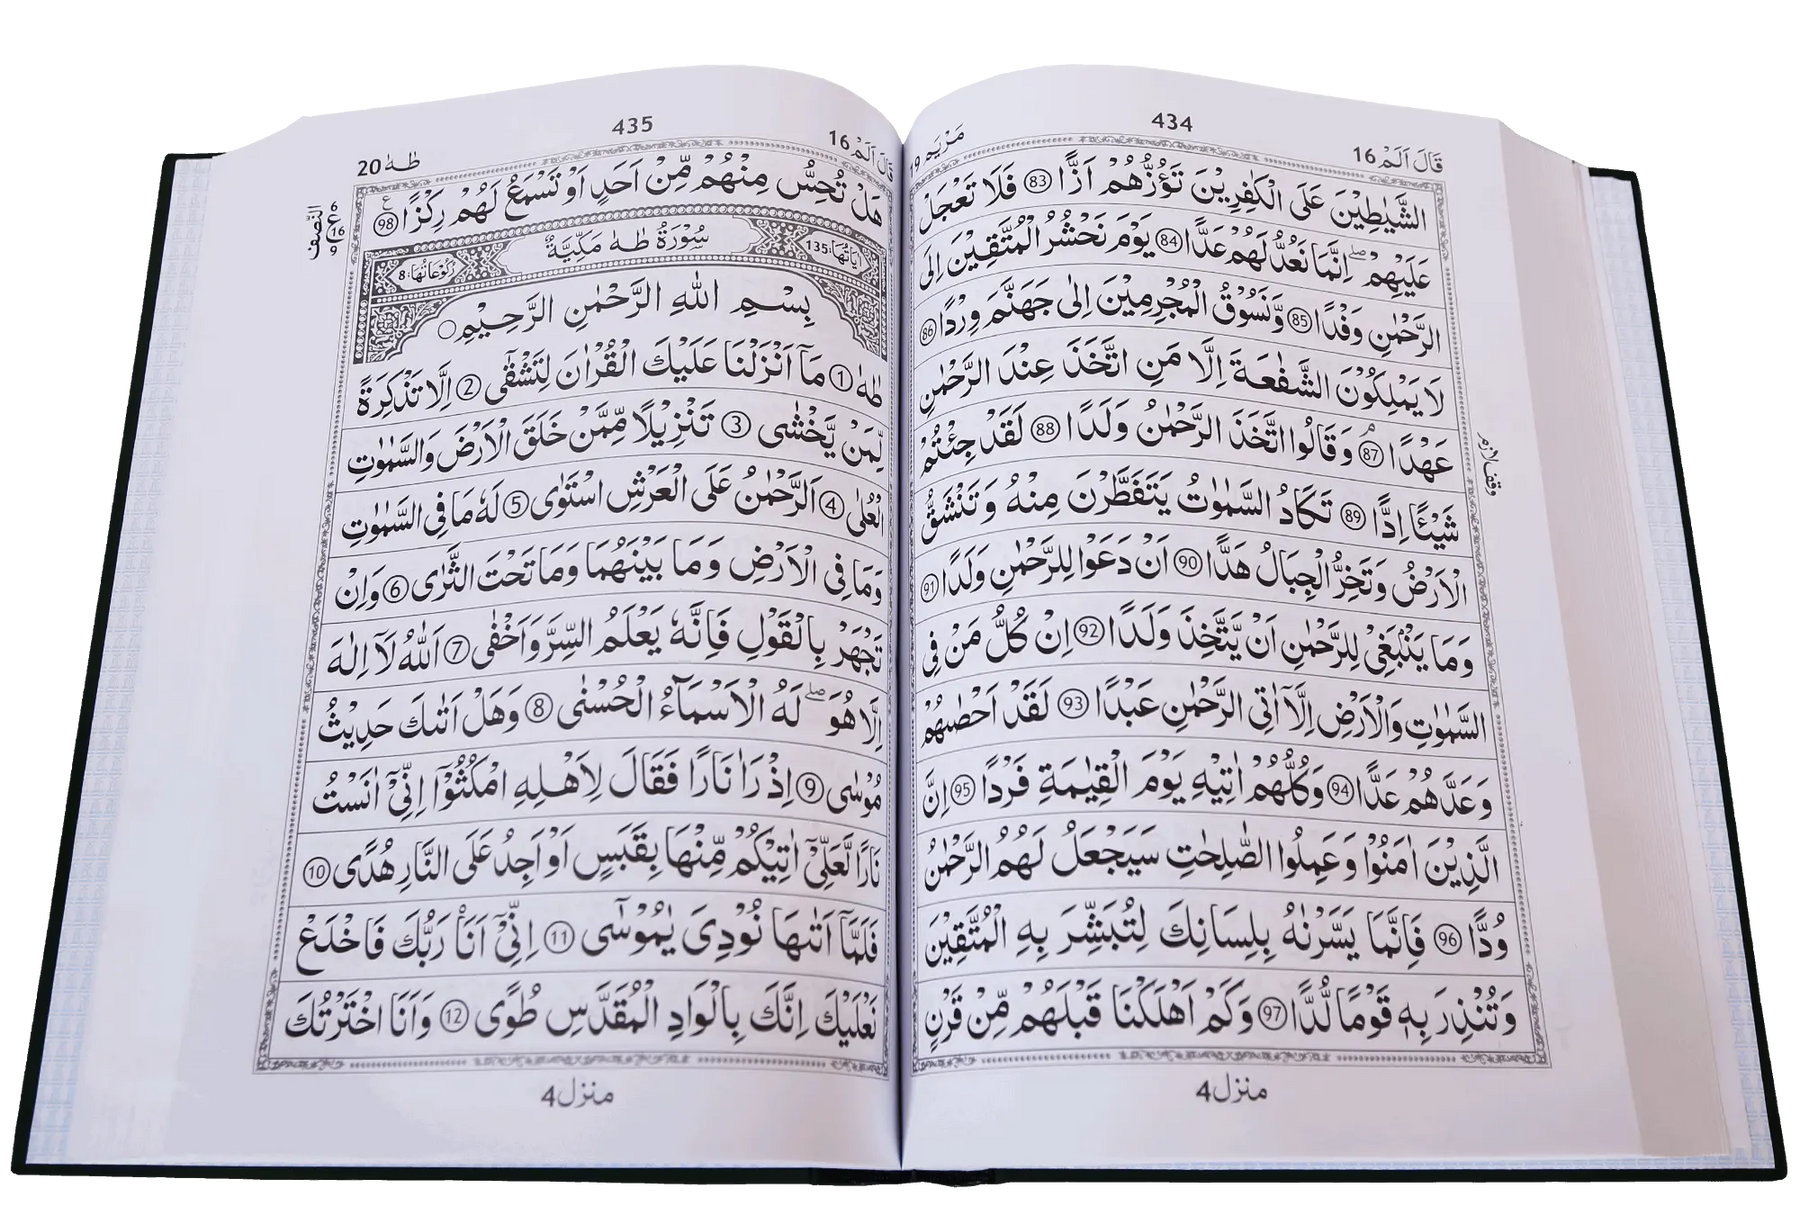 قَالَ اَلَمْ 16
434
مَرْيَم 19
الشَّيٰطِيْنَ عَلَى الْكٰفِرِيْنَ تَؤُزُّهُمْ اَزًّا 83 فَلَا تَعْجَلْ
عَلَيْهِمْ ؕ اِنَّمَا نَعُدُّ لَهُمْ عَدًّا 84 يَوْمَ نَحْشُرُ الْمُتَّقِيْنَ اِلَى
الرَّحْمٰنِ وَفْدًا 85 وَّنَسُوْقُ الْمُجْرِمِيْنَ اِلٰى جَهَنَّمَ وِرْدًا 86
لَا يَمْلِكُوْنَ الشَّفٰعَةَ اِلَّا مَنِ اتَّخَذَ عِنْدَ الرَّحْمٰنِ
عَهْدًا 87 وَقَالُوا اتَّخَذَ الرَّحْمٰنُ وَلَدًا 88 لَقَدْ جِئْتُمْ
شَيْئًا اِدًّا 89 تَكَادُ السَّمٰوٰتُ يَتَفَطَّرْنَ مِنْهُ وَتَنْشَقُّ
الْاَرْضُ وَتَخِرُّ الْجِبَالُ هَدًّا 90 اَنْ دَعَوْا لِلرَّحْمٰنِ وَلَدًا 91
وَمَا يَنْۢبَغِيْ لِلرَّحْمٰنِ اَنْ يَّتَّخِذَ وَلَدًا 92 اِنْ كُلُّ مَنْ فِي
السَّمٰوٰتِ وَالْاَرْضِ اِلَّاۤ اٰتِى الرَّحْمٰنِ عَبْدًا 93 لَقَدْ اَحْصٰىهُمْ
وَعَدَّهُمْ عَدًّا 94 وَكُلُّهُمْ اٰتِيْهِ يَوْمَ الْقِيٰمَةِ فَرْدًا 95 اِنَّ
الَّذِيْنَ اٰمَنُوْا وَعَمِلُوا الصّٰلِحٰتِ سَيَجْعَلُ لَهُمُ الرَّحْمٰنُ
وُدًّا 96 فَاِنَّمَا يَسَّرْنٰهُ بِلِسَانِكَ لِتُبَشِّرَ بِهِ الْمُتَّقِيْنَ
وَتُنْذِرَ بِهٖ قَوْمًا لُّدًّا 97 وَكَمْ اَهْلَكْنَا قَبْلَهُمْ مِّنْ قَرْنٍ
وقف لازم
منزل4
قَالَ اَلَمْ 16
435
طٰهٰ 20
هَلْ تُحِسُّ مِنْهُمْ مِّنْ اَحَدٍ اَوْ تَسْمَعُ لَهُمْ رِكْزًا 98
ع
6
ع
16
9
النصف
اٰيَاتُهَا:135
سُوْرَةُ طٰهٰ مَكِّيَّةٌ
رُكُوْعَاتُهَا:8
بِسْمِ اللّٰهِ الرَّحْمٰنِ الرَّحِيْمِ
طٰهٰ 1 مَاۤ اَنْزَلْنَا عَلَيْكَ الْقُرْاٰنَ لِتَشْقٰۤى 2 اِلَّا تَذْكِرَةً
لِّمَنْ يَّخْشٰى 3 تَنْزِيْلًا مِّمَّنْ خَلَقَ الْاَرْضَ وَالسَّمٰوٰتِ
الْعُلٰى 4 اَلرَّحْمٰنُ عَلَى الْعَرْشِ اسْتَوٰى 5 لَهٗ مَا فِي السَّمٰوٰتِ
وَمَا فِي الْاَرْضِ وَمَا بَيْنَهُمَا وَمَا تَحْتَ الثَّرٰى 6 وَاِنْ
تَجْهَرْ بِالْقَوْلِ فَاِنَّهٗ يَعْلَمُ السِّرَّ وَاَخْفٰى 7 اَللّٰهُ لَاۤ اِلٰهَ
اِلَّا هُوَ ؕ لَهُ الْاَسْمَآءُ الْحُسْنٰى 8 وَهَلْ اَتٰىكَ حَدِيْثُ
مُوْسٰى 9 اِذْ رَاٰ نَارًا فَقَالَ لِاَهْلِهِ امْكُثُوْۤا اِنِّيْۤ اٰنَسْتُ
نَارًا لَّعَلِّيْۤ اٰتِيْكُمْ مِّنْهَا بِقَبَسٍ اَوْ اَجِدُ عَلَى النَّارِ هُدًى 10
فَلَمَّاۤ اَتٰىهَا نُوْدِيَ يٰمُوْسٰۤى 11 اِنِّيْۤ اَنَا رَبُّكَ فَاخْلَعْ
نَعْلَيْكَ اِنَّكَ بِالْوَادِ الْمُقَدَّسِ طُوًى 12 وَاَنَا اخْتَرْتُكَ
منزل4